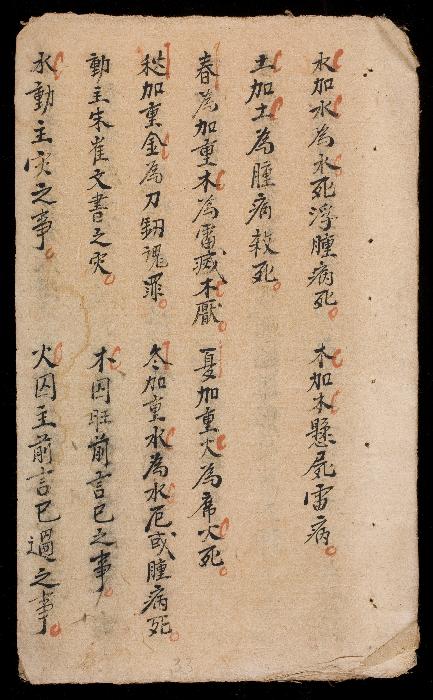 水加水為水死浮腫病死 木加木懸屍雷病
土加土為腫病殺死
春為加重木為雷滅木厭 夏加重火為席火死
秋加重金為刀釼魂罪 冬加重水為水厄或腫病死
動主朱雀文書之灾 木囚旺前言已之事
水動主灾之事 火囚主前言已過之事
33